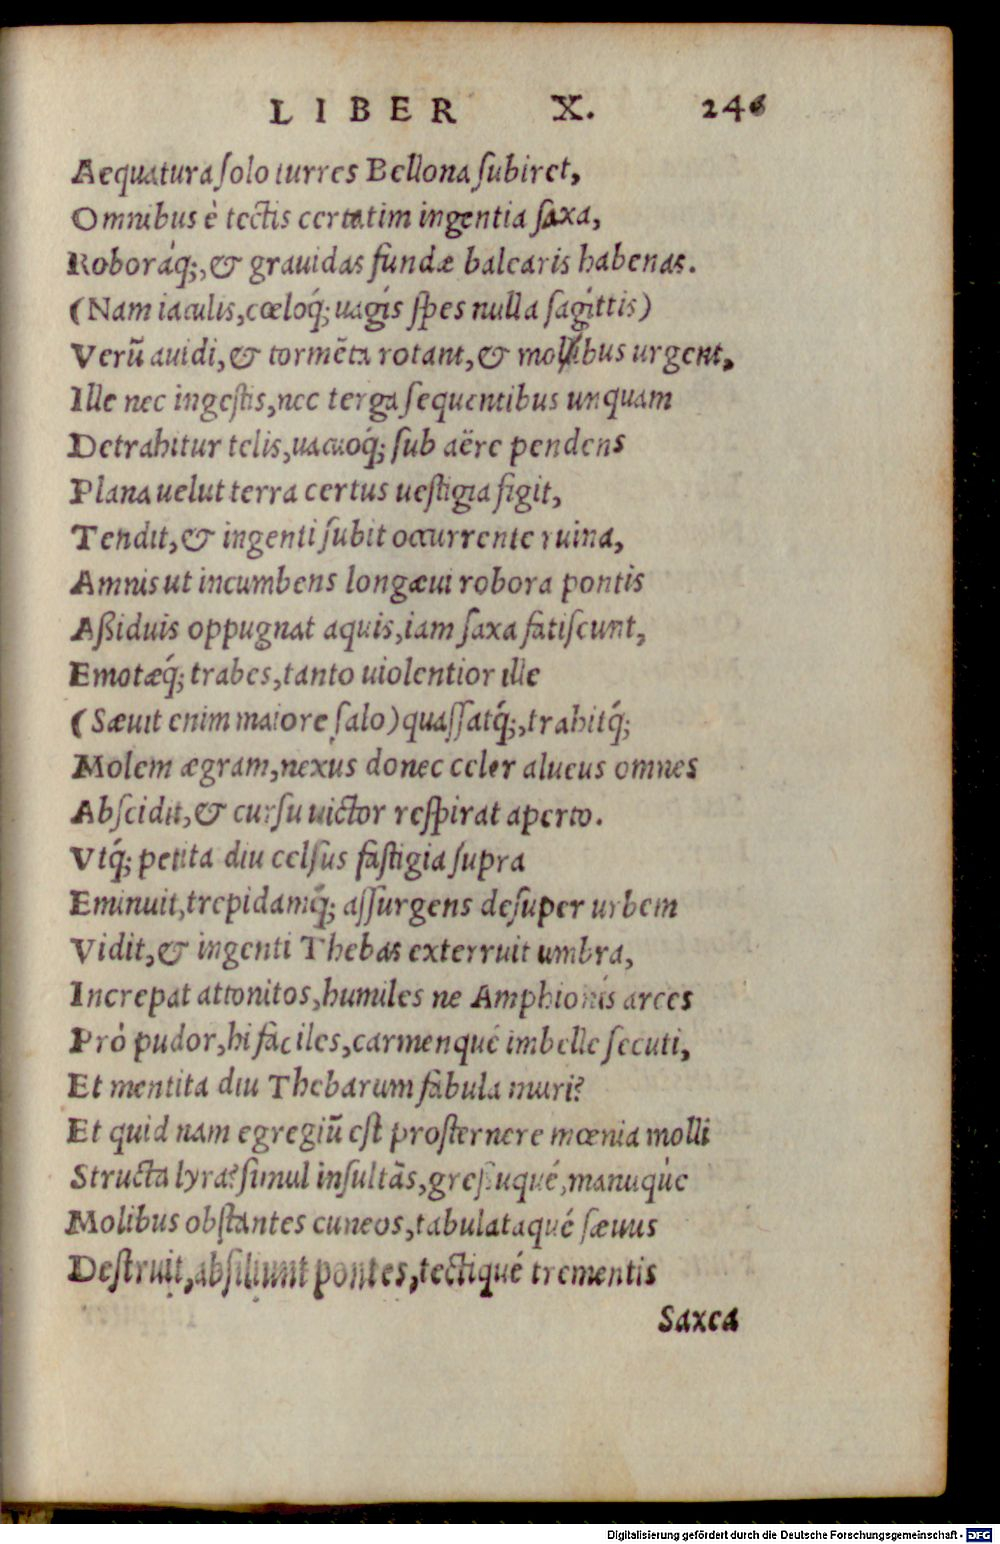 LIBER X. 246
Aequatura ſolo turres Bellona ſubiret,
Omnibus è tectis certatim ingentia ſaxa,
Roboráq́;, & grauidas fundæ balearis habenas.
(Nam iaculis, cœloq́; uagis ſpes nulla ſagittis)
Verũ auidi, & tormẽta rotant, & molibus urgent,
Ille nec ingeſtis, nec terga ſequentibus unquam
Detrahitur telis, uacuoq́; ſub aëre pendens
Plana uelut terra certus ueſtigia figit,
Tendit, & ingenti ſubit occurrente ruina,
Amnis ut incumbens longæui robora pontis
Aßiduis oppugnat aquis, iam ſaxa fatiſcunt,
Emotæq́; trabes, tanto uiolentior ille
(Sæuit enim maiore ſalo) quaſſatq́;, trahitq́;
Molem ægram, nexus donec celer alueus omnes
Abſcidit, & curſu uictor reſpirat aperto.
Vtq́; petita diu celſus faſtigia ſupra
Eminuit, trepidamq́; aſſurgens deſuper urbem
Vidit, & ingenti Thebas exterruit umbra,
Increpat attonitos, humiles ne Amphionis arces
Prò pudor, hi faciles, carmenqué imbelle ſecuti,
Et mentita diu Thebarum fabula muri?
Et quid nam egregiũ eſt proſternere mœnia molli
Structa lyra? ſimul inſultãs, greſſuqué, manuqùe
Molibus obſtantes cuneos, tabulataqué ſæuus
Deſtruit, abſiliunt pontes, tectiqué trementis
Saxea
Digitalisierung gefördert durch die Deutsche Forschungsgemeinschaft - DFG